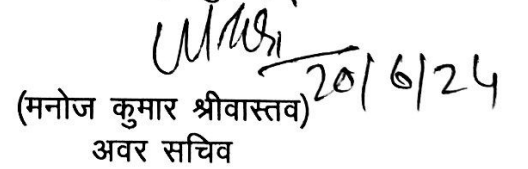 20/6/24
(मनोज कुमार श्रीवास्तव)
अवर सचिव